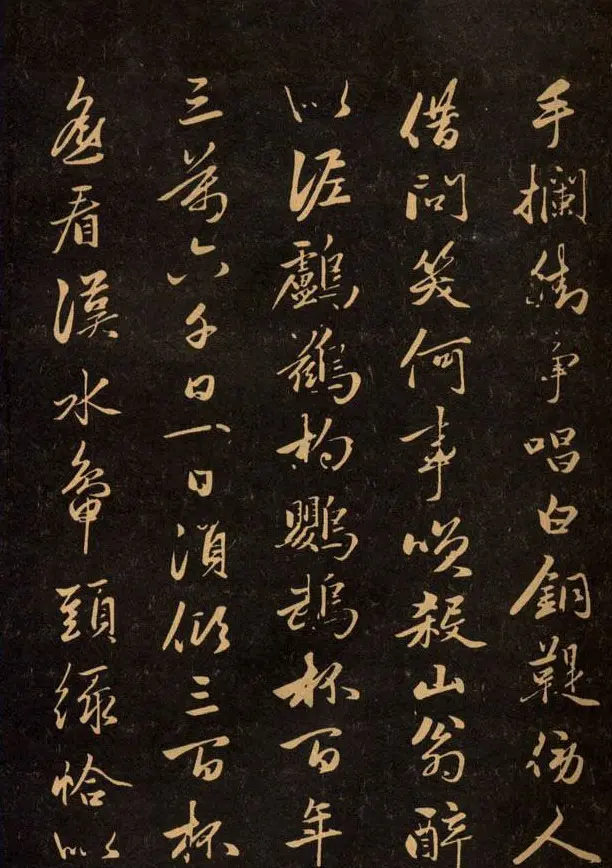 手攔街爭唱白銅鞮傍人
借問笑何事咲殺山翁醉
似泥鸕鶿杓鸚鵡杯百年
三萬六千日一日須傾三百杯
遙看漢水鴨頭綠恰似